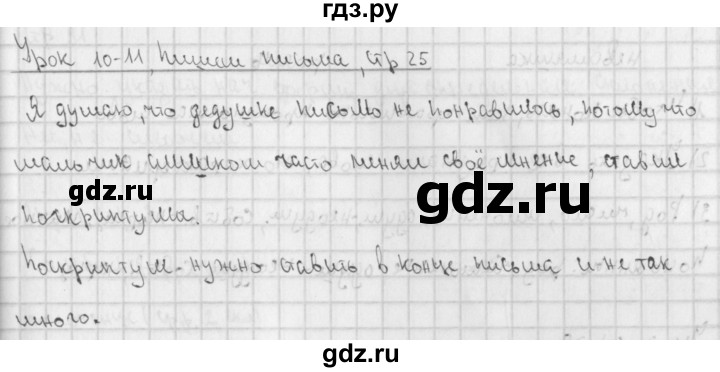 гдз.ру
Урок 10-11, пишем письма, стр 25
Я думаю, что дедушке письмо не понравилось, потому что
мальчик слишком часто менял своё мнение, ставил
поскриптума.
gdz.ru
gdz.ru
Поскриптум нужно ставить в конце письма и не так
много.
gdz.ru